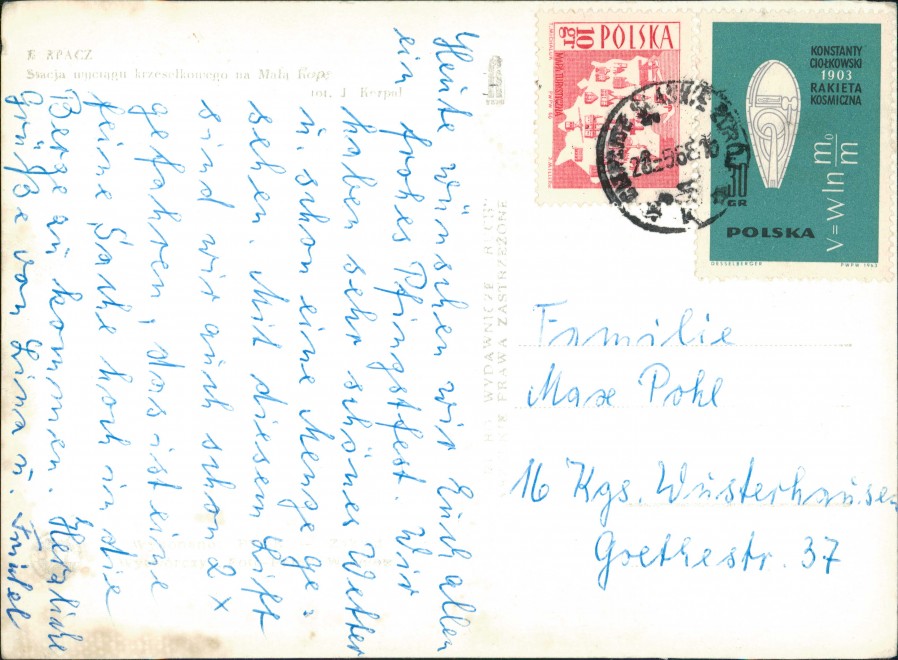 KARPACZ
Stacja wyciągu krzesełkowego na Małą Kopę
fot. J. Korpal
Heute wünschen wir Euch allen
ein frohes Pfingstfest. Wir
haben sehr schönes Wetter
u. schon eine Menge ge=
sehen. Mit diesem Lift
sind wir auch schon 2 x
gefahren, das ist eine
feine Sache hoch in die
Berge zu kommen. Herzliche
Grüße von Lina u.
WYDAWNICZE
PRAWA ZASTRZEŻONE
10 gr POLSKA
KONSTANTY
CIOŁKOWSKI
1903
RAKIETA
KOSMICZNA
V = w ln m₀/m
GR
POLSKA
DESSELBERGER PWPW 1963
Familie
Max Pohl
16 Kgs. Wusterhausen
Goethestr. 37